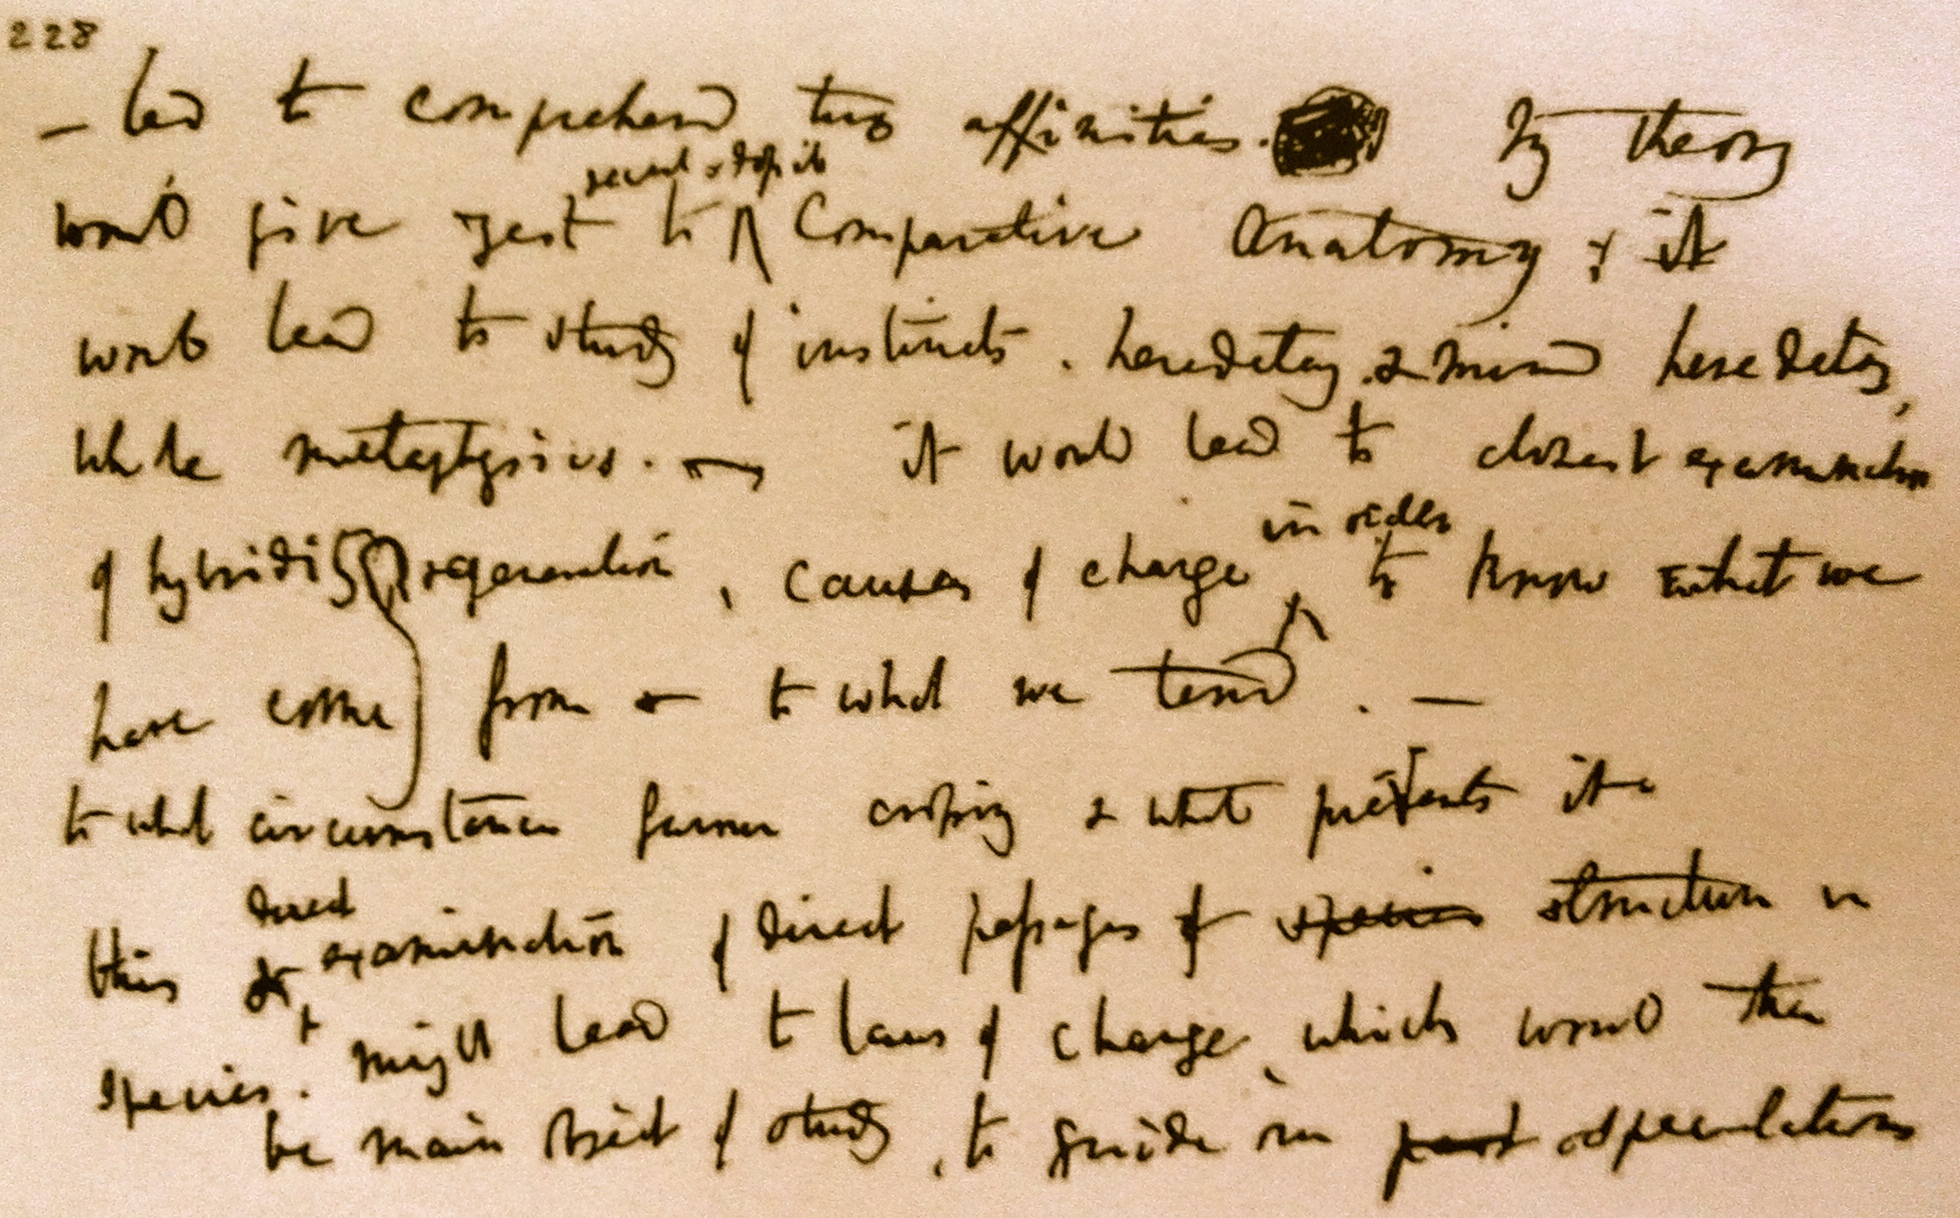 228
— led to comprehend true affinities. My theory
recent & Fossil
would give zest to Comparative Anatomy; & it
would lead to study of instincts. hereditary. & mind hereditary,
whole metaphysics. — it would lead to closest examination
of hybridity & generation, causes of change in order to know what we
have come from & to what we tend. —
to what circumstances favour crossing & what prevents it —
this & direct examination of direct passages of species structure in
species. might lead to laws of change, which would then
be main object of study, to guide our past speculations